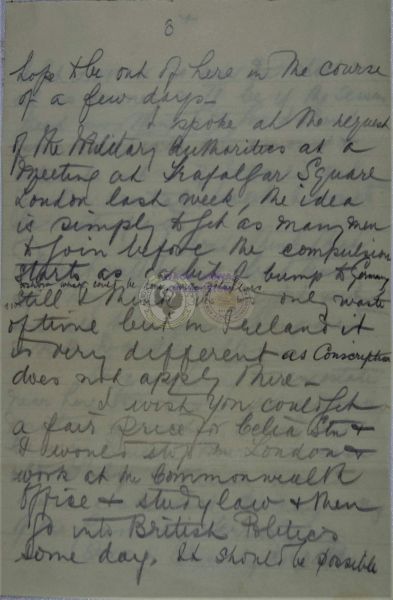 8
hope to be out of here in the course
of a few days –
I spoke at the request
of the Military Authorities at a
Meeting at Trafalgar Square
London last week, the idea
is simply to get as many men
to join before the compulsion
starts as a bit of bump to Germany
still I think it is only waste
of time but in Ireland it
is very different as Conscription
does not apply there –
I wish you could get
a fair price for Celia Stn &
I would stop in London &
work at the Commonwealth
Office & study law & then
go into British Politics
some day. It should be possible